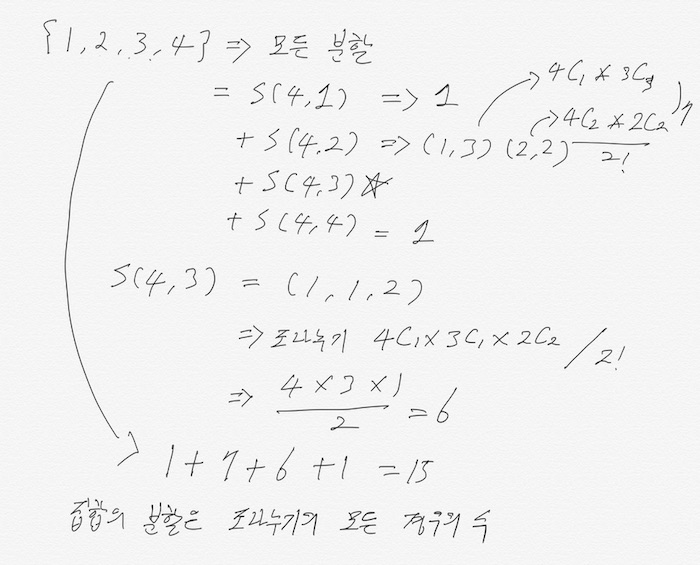 {1,2,3,4} => 모든 분할
= S(4,1) => 1
4C₁ × 3C₃
+ S(4,2) => (1,3) (2,2)
4C₂ × 2C₂ / 2!
7
+ S(4,3) ☆
+ S(4,4) = 1
S(4,3) = (1,1,2)
=> 조나누기 4C₁ × 3C₁ × 2C₂ / 2!
=> 4 × 3 × 1 / 2 = 6
1 + 7 + 6 + 1 = 15
집합의 분할은 조나누기의 모든 경우의 수